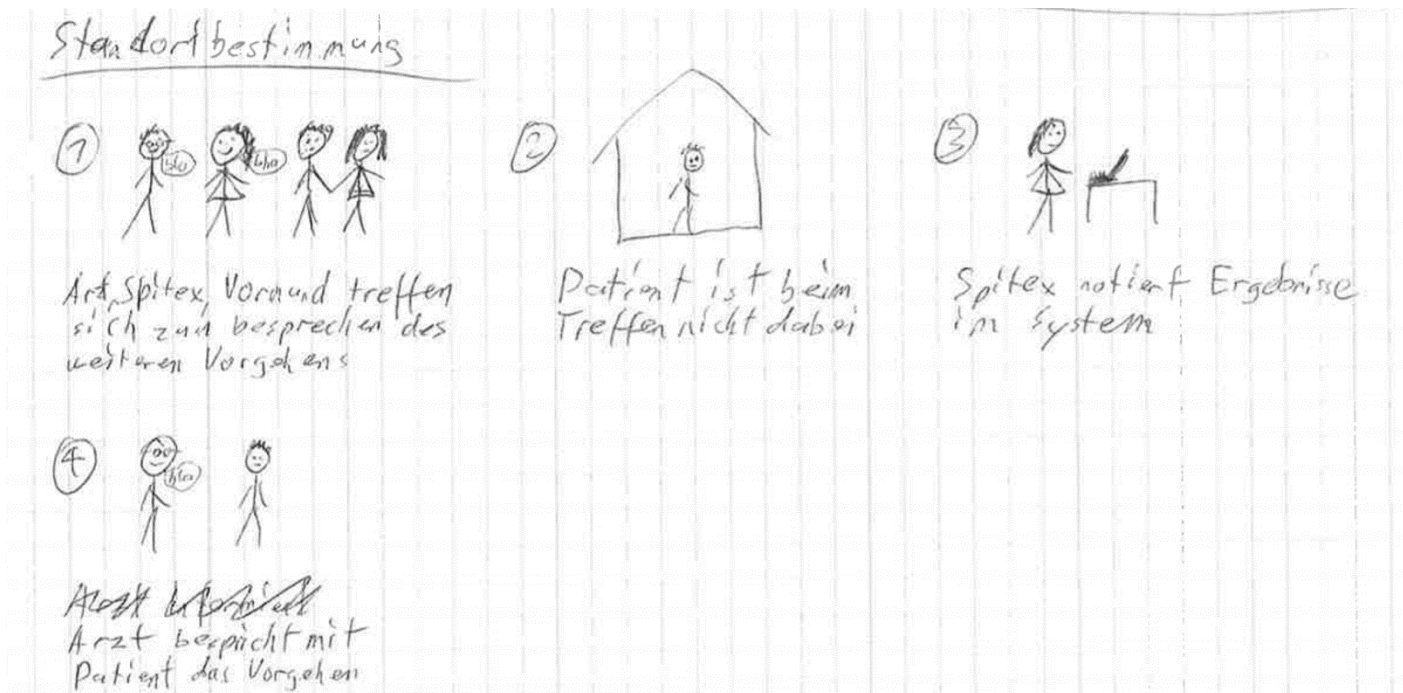 Standortbestimmung
1
bla
bla
Arzt, Spitex, Vormund treffen
sich zum besprechen des
weiteren Vorgehens
2
Patient ist beim
Treffen nicht dabei
3
Spitex notiert Ergebnisse
im System
4
bla
Arzt bespricht mit
Patient das Vorgehen